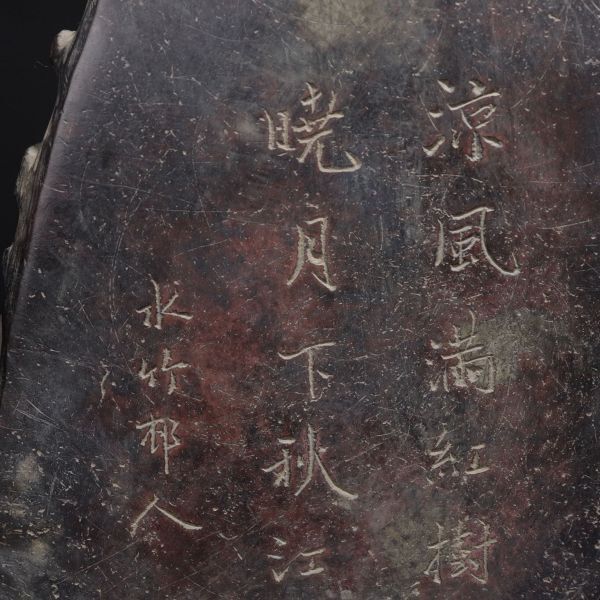 涼風満紅樹
曉月下秋江
水竹邨人